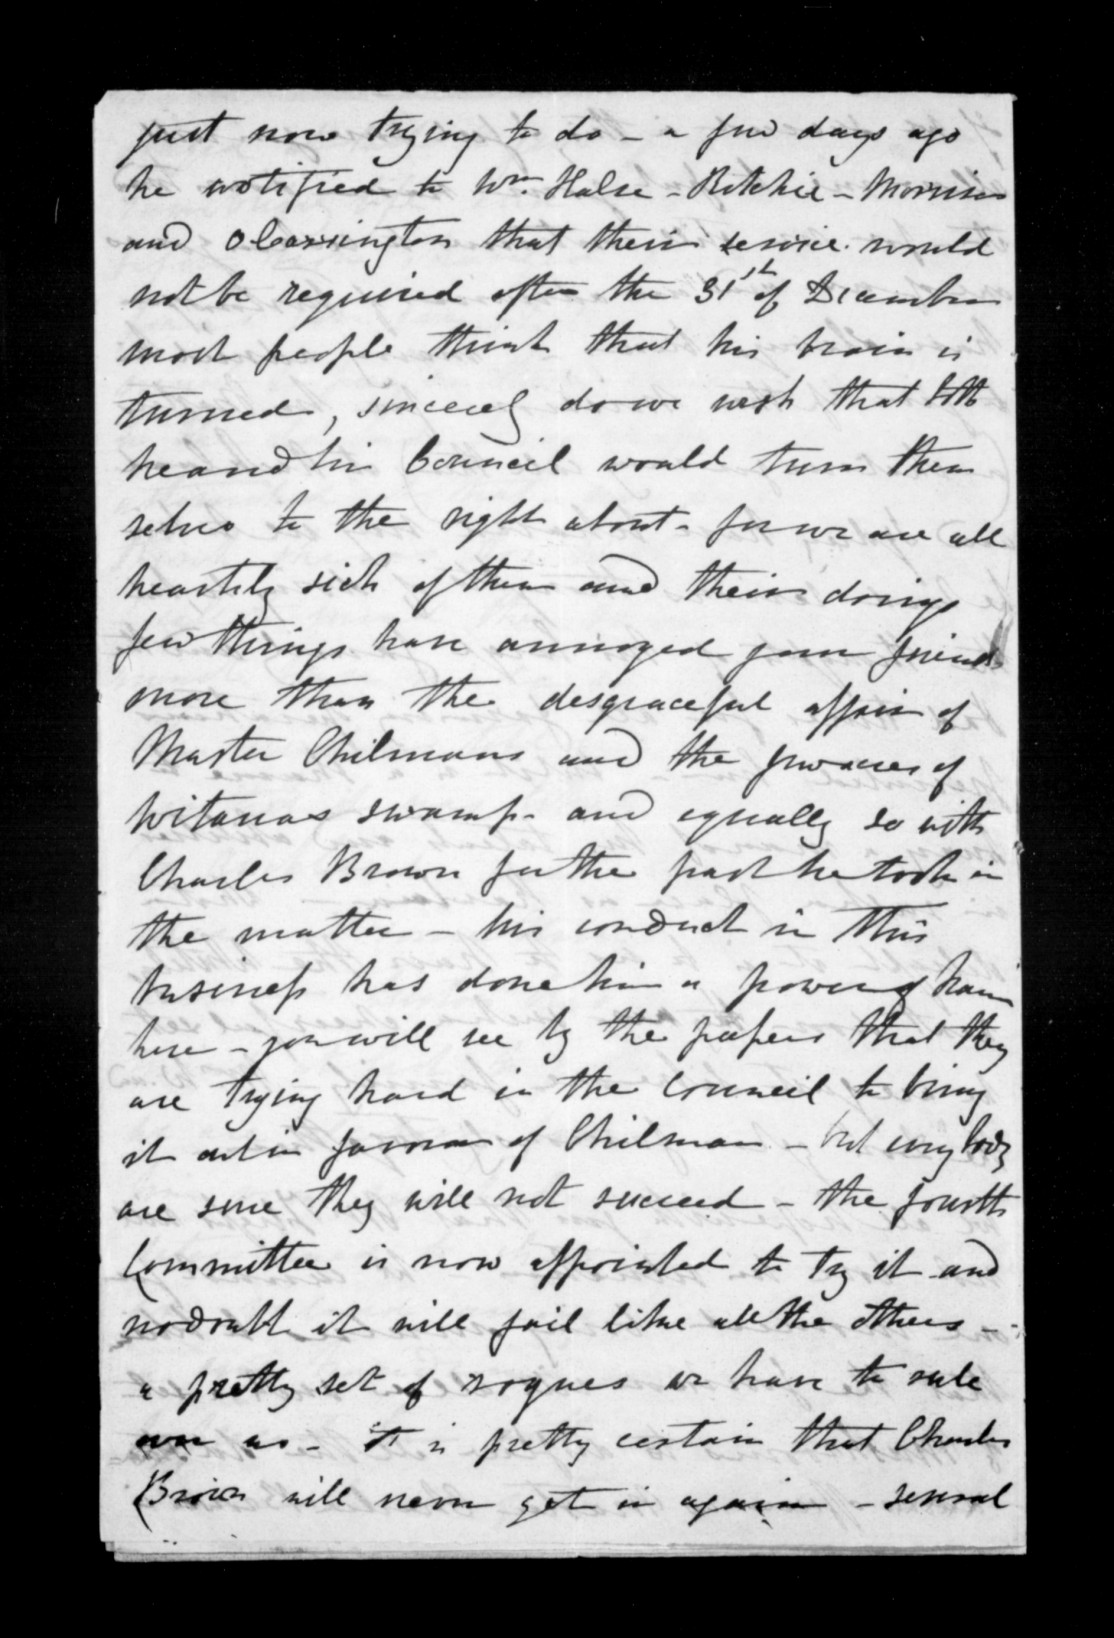 just now trying to do - a few days ago
he notified to Wm. Halse - Ritchie - Morrison
and O Carrington that their service would
not be required after the 31st of December
most people think that his brain is
turned, sincerely do we wish that both
he and his Council would turn them
selves to the right about - for we are all
heartily sick of them and their doings
few things have annoyed your friends
more than the desgraceful affair of
Master Chilmans and the few acres of
swamp - and equally so with
Charles Brown for the part he took in
the matter - his conduct in this
business has done him a power of harm
here - you will see by the papers that they
are trying hard in the Council to bring
it out in favour of Chilman - but every body
are sure they will not succeed - the fourth
Committee is now appointed to try it and
no doubt it will fail like all the others -
a pretty set of rogues we have to rule
over us - it is pretty certain that Charles
Brown will never get in again - several